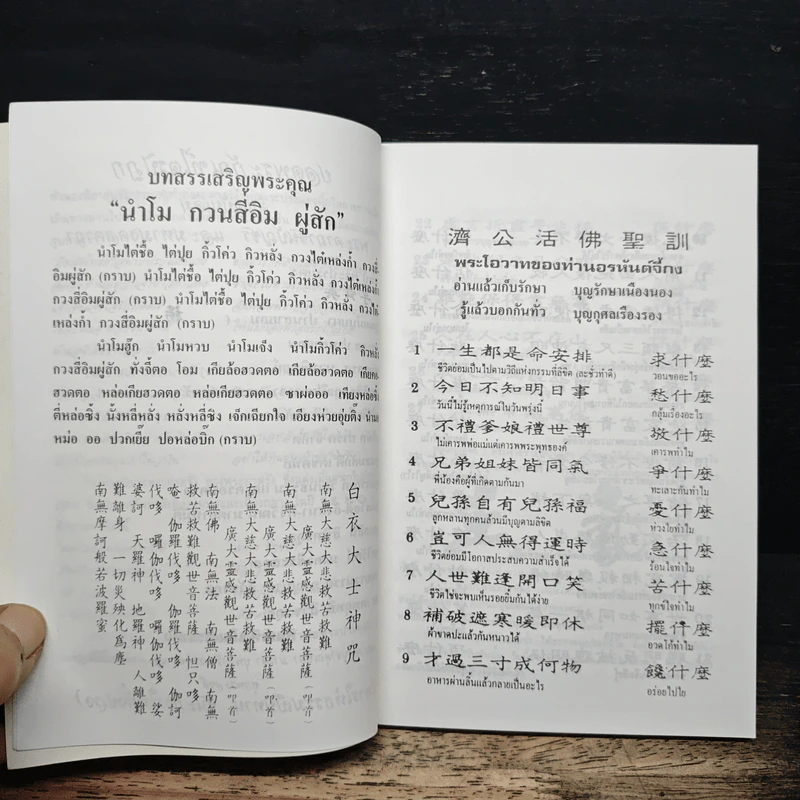 บทสรรเสริญพระคุณ
“นำโม กวนสี่อิม ผู่สัก”
นำโมไต่ชื้อ ไต่ปุย กิ้วโค่ว กิวหลั่ง กวงไต่เหล่งก้ำ กวงสี่
อิมผู่สัก (กราบ) นำโมไต่ชื้อ ไต่ปุย กิ้วโค่ว กิวหลั่ง กวงไต่เหล่งก้ำ
กวงสี่อิมผู่สัก (กราบ) นำโมไต่ชื้อ ไต่ปุย กิ้วโค่ว กิวหลั่ง กวงไต่
เหล่งก้ำ กวงสี่อิมผู่สัก (กราบ)
นำโมฮู๊ก นำโมหวบ นำโมเจ็ง นำโมกิ้วโค่ว กิวหลั่ง
กวงสี่อิมผู่สัก ทั่งจี้ตอ โอม เกียล้อฮวดตอ เกียล้อฮวดตอ เกียคอ
ฮวดตอ หล่อเกียฮวดตอ หล่อเกียฮวดตอ ซาผ่อออ เทียงหล่อซิ้ง
ตี่หล่อซิ้ง นั้งหลี่หลั่ง หลั่งหลี่ซิง เจ็กเฉียกใจ เอียงห่วยอุ่ยติ๊ง นำมอ
หม่อ ออ ปวกเยี๊ย ปอหล่อบิ๊ก (กราบ)
白衣大士神咒
南無大慈大悲救苦救難
廣大靈感觀世音菩薩（叩首）
南無大慈大悲救苦救難
廣大靈感觀世音菩薩（叩首）
南無大慈大悲救苦救難
廣大靈感觀世音菩薩（叩首）
南無佛 南無法 南無僧 南無
救苦救難觀世音菩薩 怛只哆
唵 伽囉伐哆 伽囉伐哆 伽訶
伐哆 囉伽伐哆 囉伽伐哆 娑
婆訶 天羅神 地羅神 人離難
難離身 一切災殃化為塵
南無摩訶般若波羅蜜
濟公活佛聖訓
พระโอวาทของท่านอรหันต์จี้กง
อ่านแล้วเก็บรักษา บุญรักษาเนืองนอง
รู้แล้วบอกกันทั่ว บุญกุศลเรืองรอง
1 一生都是命安排 求什麼
ชีวิตย่อมเป็นไปตามวิถีแห่งกรรมที่ลิขิต (ละชั่วทำดี) วอนขออะไร
2 今日不知明日事 愁什麼
วันนี้ไม่รู้เหตุการณ์ในวันพรุ่งนี้ กลุ้มเรื่องอะไร
3 不禮爹娘禮世尊 敬什麼
ไม่เคารพพ่อแม่แต่เคารพพระพุทธองค์ เคารพทำไม
4 兄弟姐妹皆同氣 爭什麼
พี่น้องคือผู้ที่เกิดตามกันมา ทะเลาะกันทำไม
5 兒孫自有兒孫福 憂什麼
ลูกหลานทุกคนล้วนมีบุญตามลิขิต ห่วงใยทำไม
6 豈可人無得運時 急什麼
ชีวิตย่อมมีโอกาสประสบความสำเร็จได้ ร้อนใจทำไม
7 人世難逢開口笑 苦什麼
ชีวิตใช่จะพบเห็นรอยยิ้มกันได้ง่าย ทุกข์ใจทำไม
8 補破遮寒暖即休 擺什麼
ผ้าขาดปะแล้วกันหนาวได้ อวดโก้ทำไม
9 才過三寸成何物 饞什麼
อาหารผ่านลิ้นแล้วกลายเป็นอะไร อร่อยไปใย